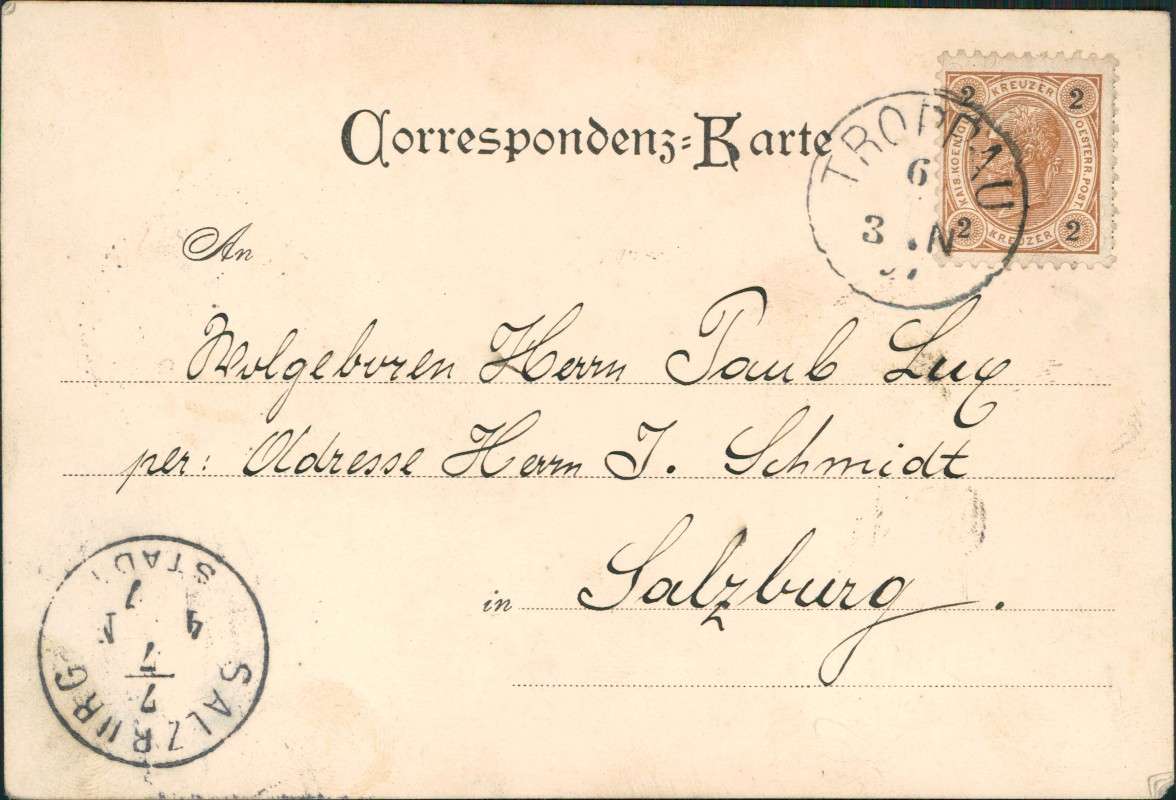 Correspondenz-Karte
2 KREUZER 2
KAIS. KOENIGL. OESTERR. POST.
2 KREUZER 2
TROPPAU
6
3 N
97
An
Wolgeboren Herrn Paul Lux
per: Adresse Herrn J. Schmidt
in Salzburg.
SALZBURG
7
7
4 N
1
STADT